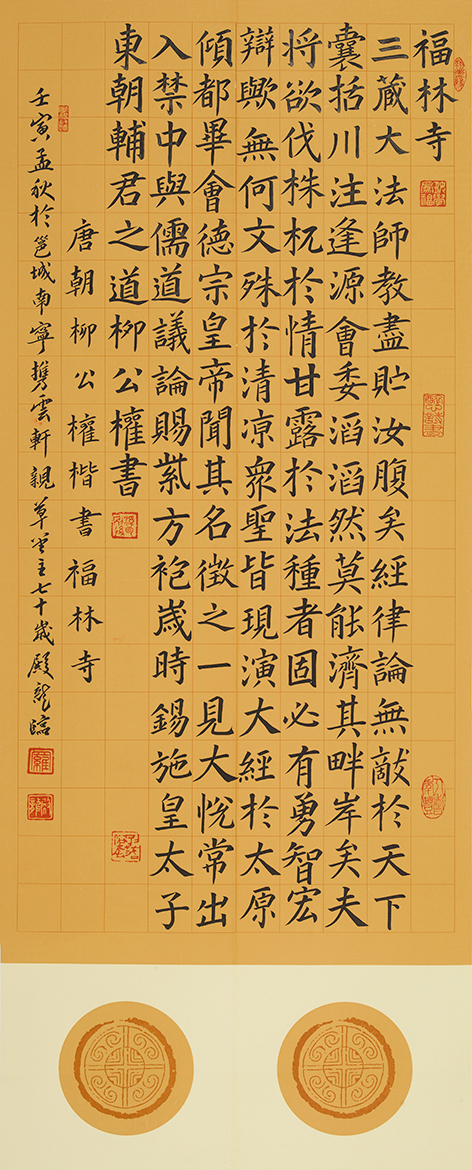 福林寺
三藏大法師教盡貯汝腹矣經律論無敵於天下
囊括川注逢源會委滔滔然莫能濟其畔岸矣夫
将欲伐株杌於情甘露於法種者固必有勇智宏
辯歟無何文殊於清凉衆聖皆現演大經於太原
傾都畢會德宗皇帝聞其名徵之一見大悅常出
入禁中與儒道議論賜紫方袍歲時錫施皇太子
東朝輔君之道柳公權書
唐朝柳公權楷書福林寺
壬寅孟秋於邕城南寧攜雲軒親草堂主七十歲殿龍臨